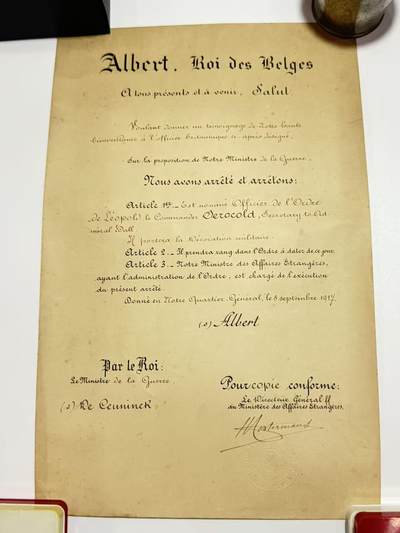 Albert, Roi des Belges
A tous présents et à venir, Salut
Voulant donner un témoignage de Notre haute
bienveillance à l'officier britannique ci-après désigné,
Sur la proposition de Notre Ministre de la Guerre,
Nous avons arrêté et arrêtons:
Article 1er.- Est nommé Officier de l'Ordre
de Léopold le Commander Serocold, Secretary to Ad
miral Hall
Il portera la décoration militaire.
Article 2.- Il prendra rang dans l'Ordre à dater de ce jour.
Article 3.- Notre Ministre des Affaires Etrangères,
ayant l'administration de l'Ordre, est chargé de l'exécution
du présent arrêté.
Donné en Notre Quartier Général, le 8 septembre 1917.
(s) Albert
Par le Roi:
Le Ministre de la Guerre
(s) De Ceuninck
Pour copie conforme:
Le Directeur Général
du Ministère des Affaires Etrangères,